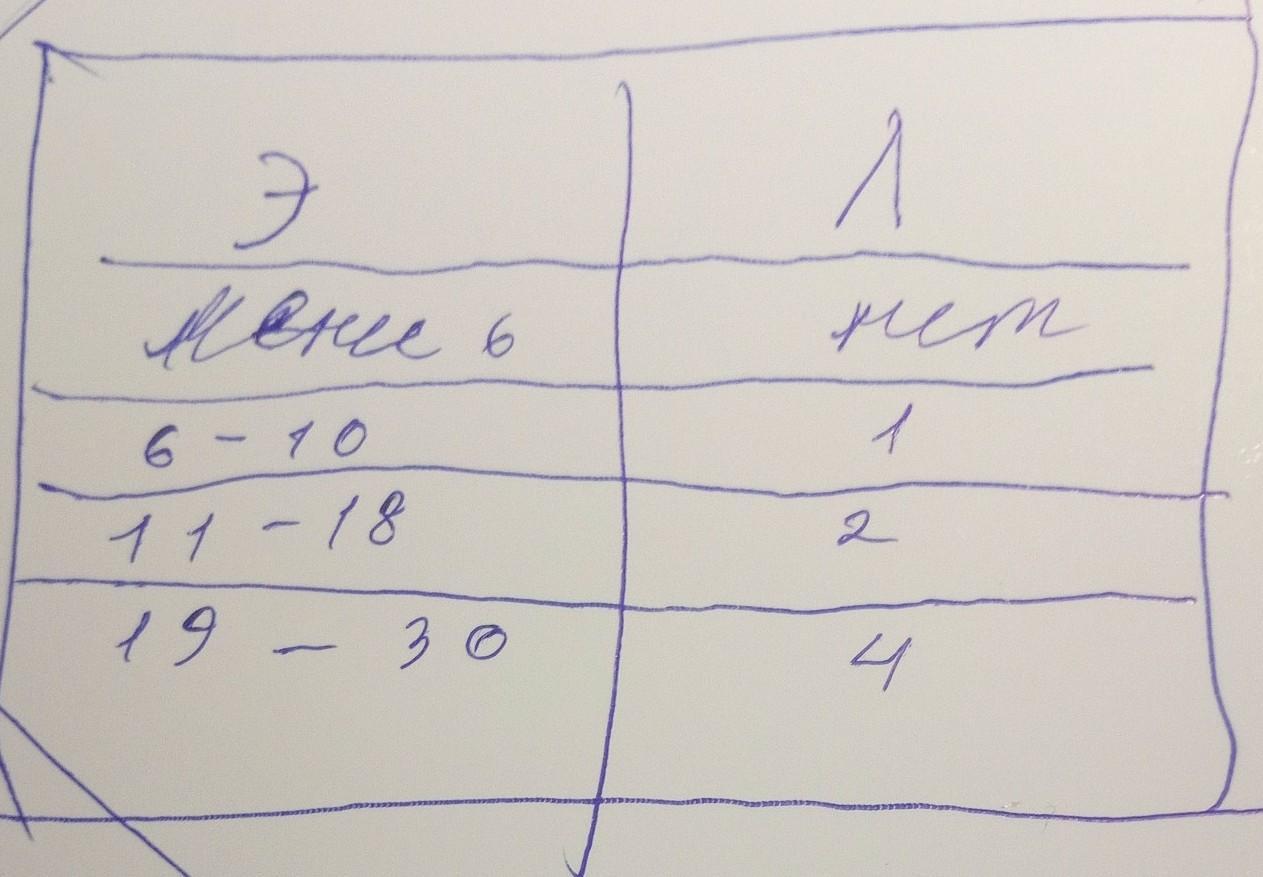 Э Л
Менее 6 нет
6 - 10 1
11 - 18 2
19 - 30 4